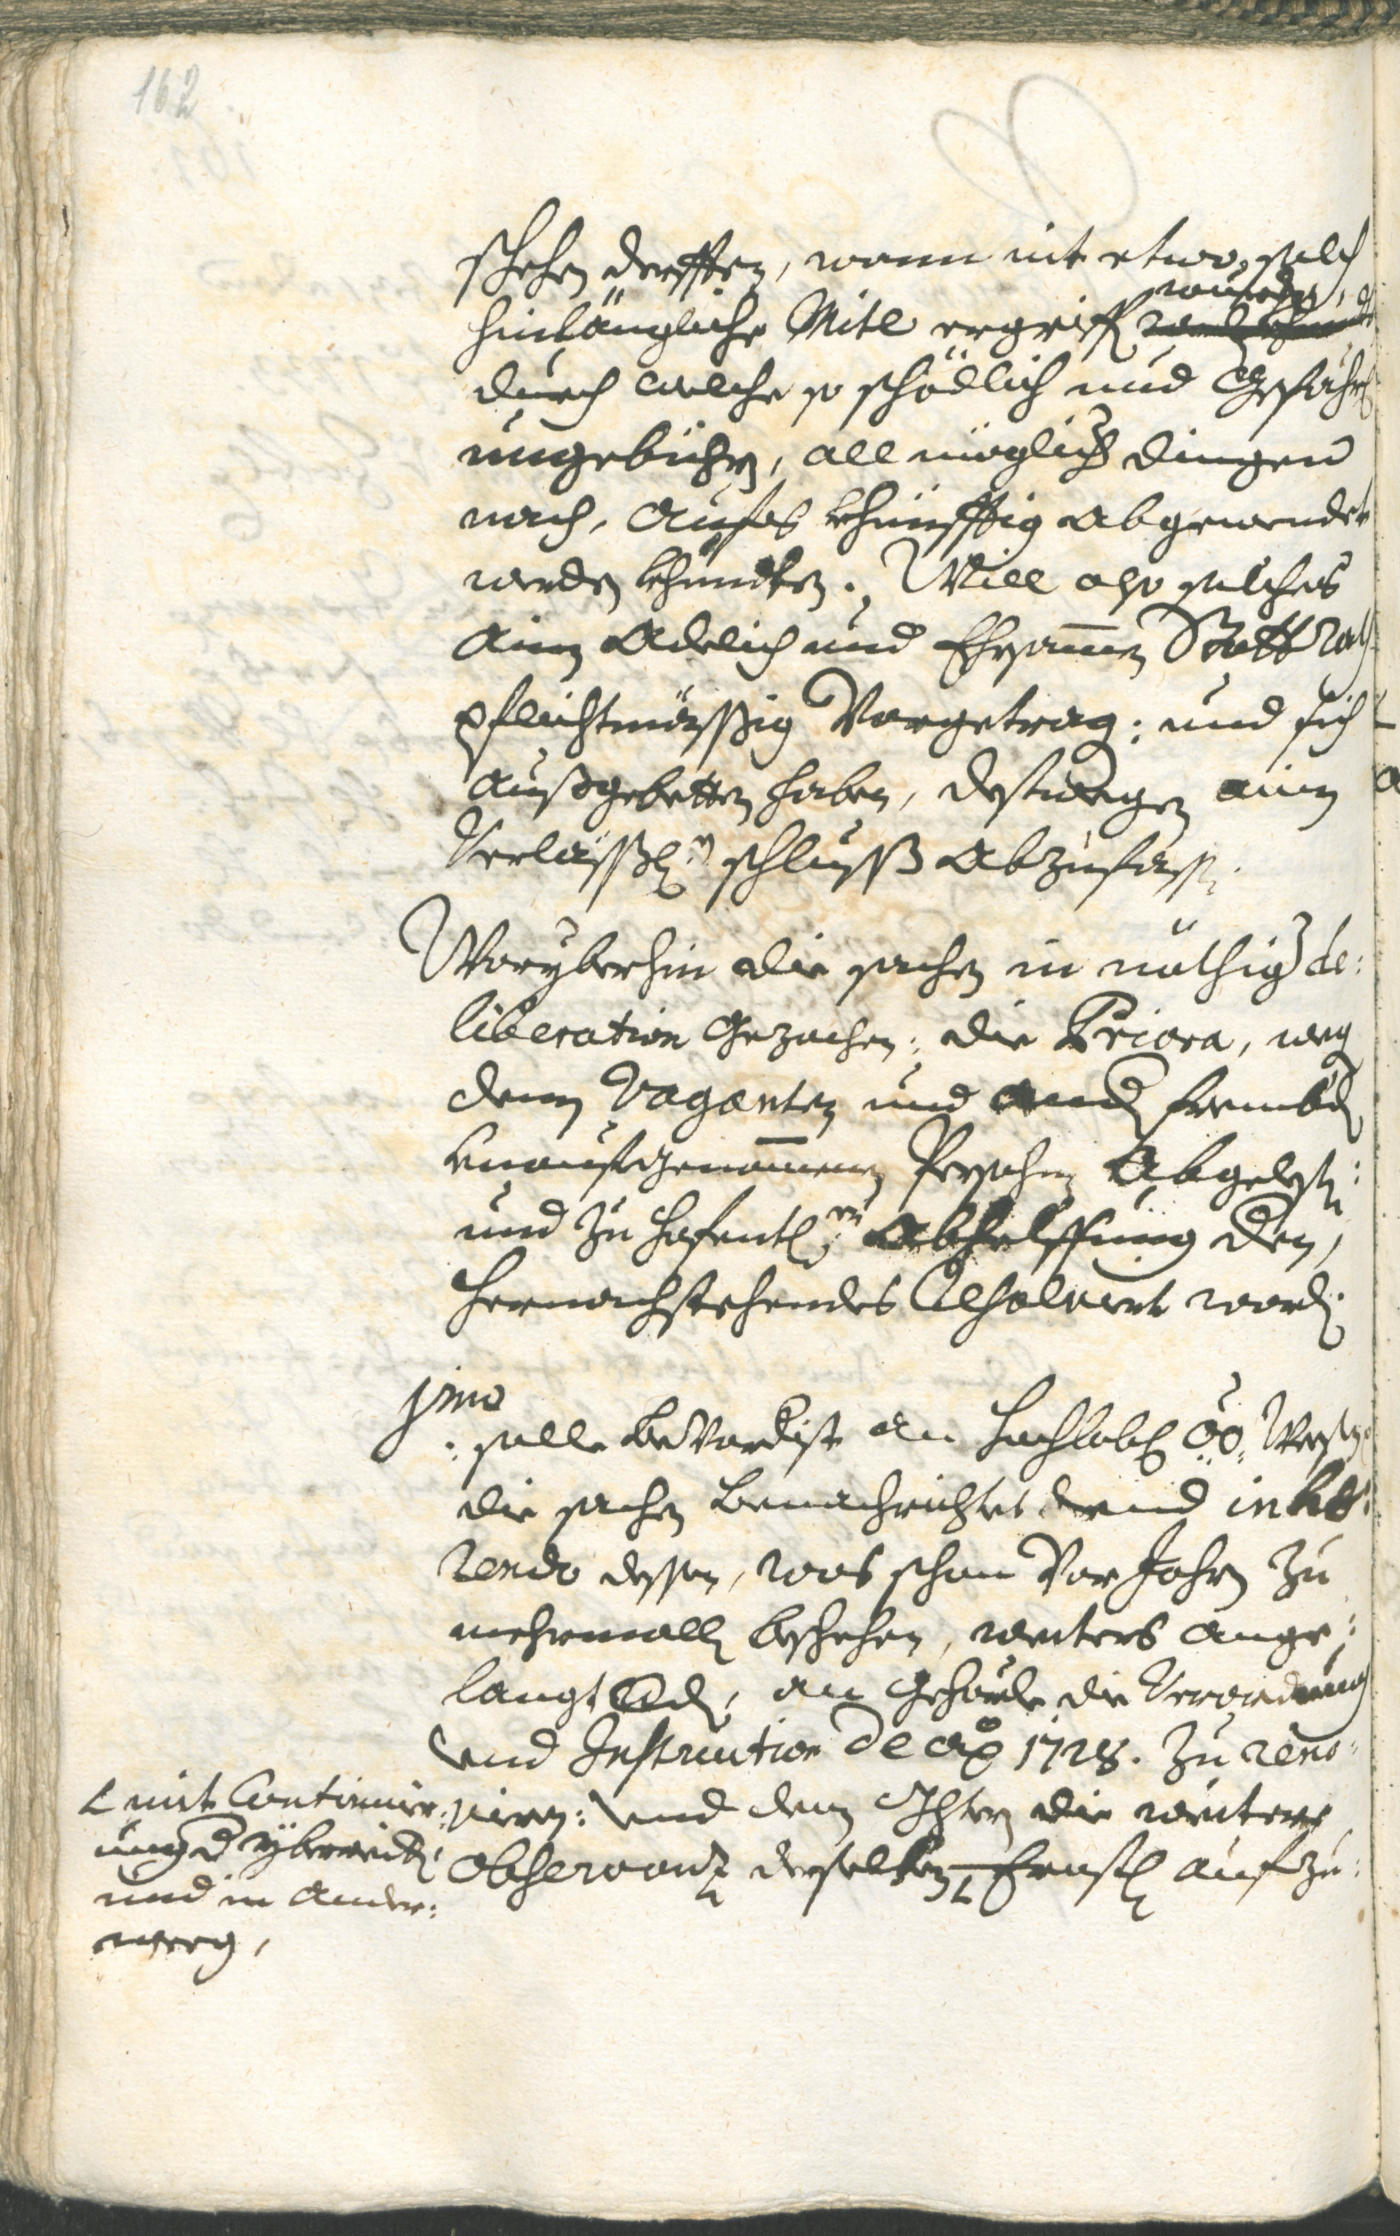 162
schehen derfften, wann nit etwo solch
hinlängliche Mitl ergriffen wurden,
durch welche so schödlich und Gefährl
ungebühren, all möglich dingen
nach, aufs khünfftig abgewendet
werden khündten. Will also solches
ainen Adelich und Ehrsammen Statt Rath
pflichtmässig Vorgetragen: und sich
außgebetten haben, destwegen ainen
Verlässlen schlusß abzufassen.
Woryberhin die sachen in nöthige de:
liberation Gezochen: die Priora, wegen
denen Vaganten und andern frembden
unaufgenommenen Persohnen abgelesen:
und zu hofentlen Abhelffung den,
hernachstehendes absolviert worden.
jmo
: solle bevordist an hochlobl OÖ. Wesen
die sachen benachrichtet und inhæ:
rendo dessen, was schon Vor Jahren zu
mehrmallen beschehen, weiters ange:
langt werden, an Gehörde die Verordnung
und Instruction de ao 1728. zu reno:
vieren: und denen die weitere
observanz derselben, Ernstl aufzu:
mit Continuir:
ung
und in ander:
weeg,